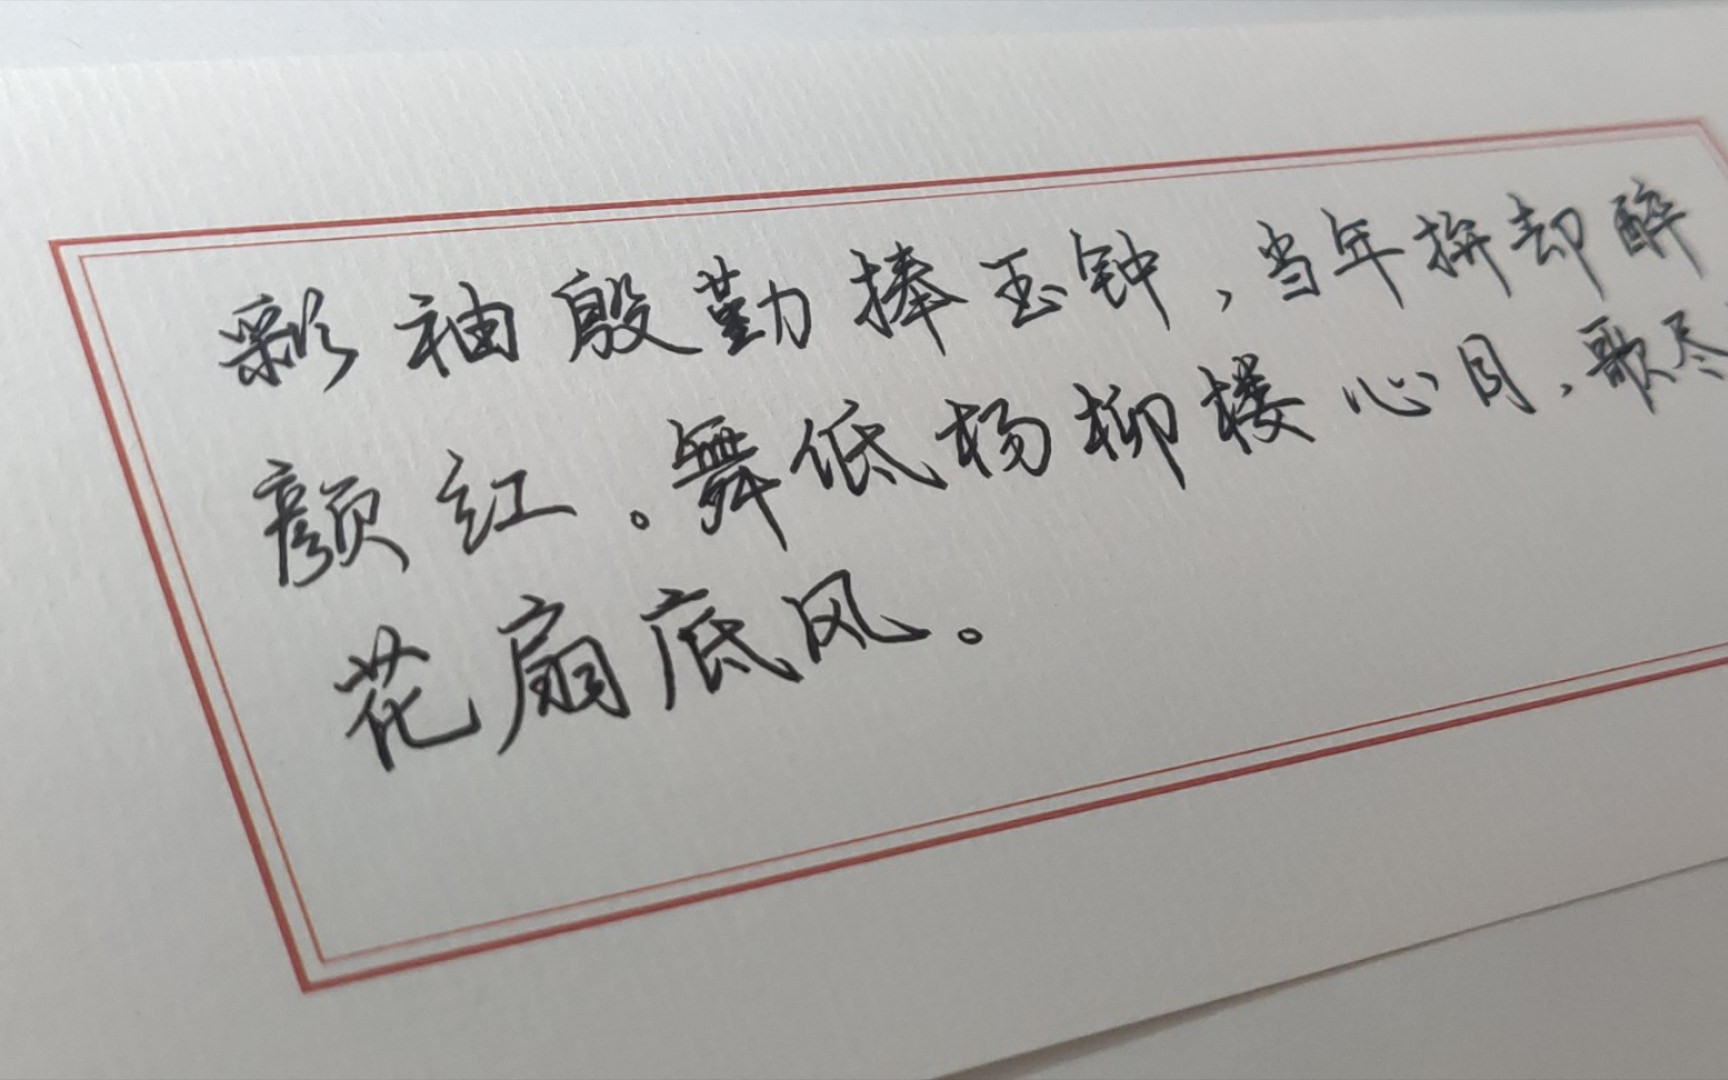 彩袖殷勤捧玉钟，当年拚却醉
颜红。舞低杨柳楼心月，歌尽
花扇底风。